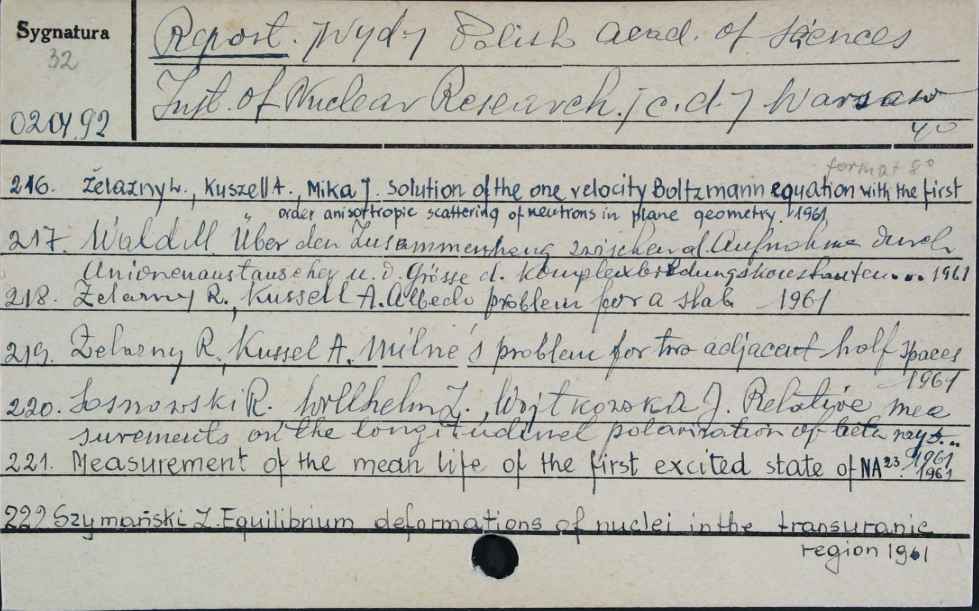 Sygnatura
32
0204.92
Report. /Wyd/ Polish Acad. of Siences
Inst. of Nuclear Research. /c.d./ Warsaw
40
format 8°
216. Żelazny R., Kuszell A., Mika J. Solution of the one velocity Boltzmann equation with the first
order anisortropic scattering of neutrons in plane geometry. 1961
217. Wald M. Über den Zusammenhang zwischen d. Aufnahme durch
Anionenaustauscher u. d. Grösse d. Komplexbildungskonstanten... 1961
218. Żelazny R., Kussell A. Albedo problem for a slab 1961
219. Żelazny R., Kussel A. Milne's problem for two adjacent half spaces
1961
220. Sosnowski R. Wilhelmi Z., Wojtkowska J. Relative mea
surements on the longitudinel polarization of beta rays...
1961
221. Measurement of the mean life of the first excited state of NA²³. 1961
222 Szymański Z. Equilibrium deformations of nuclei in the transuranic
region 1961